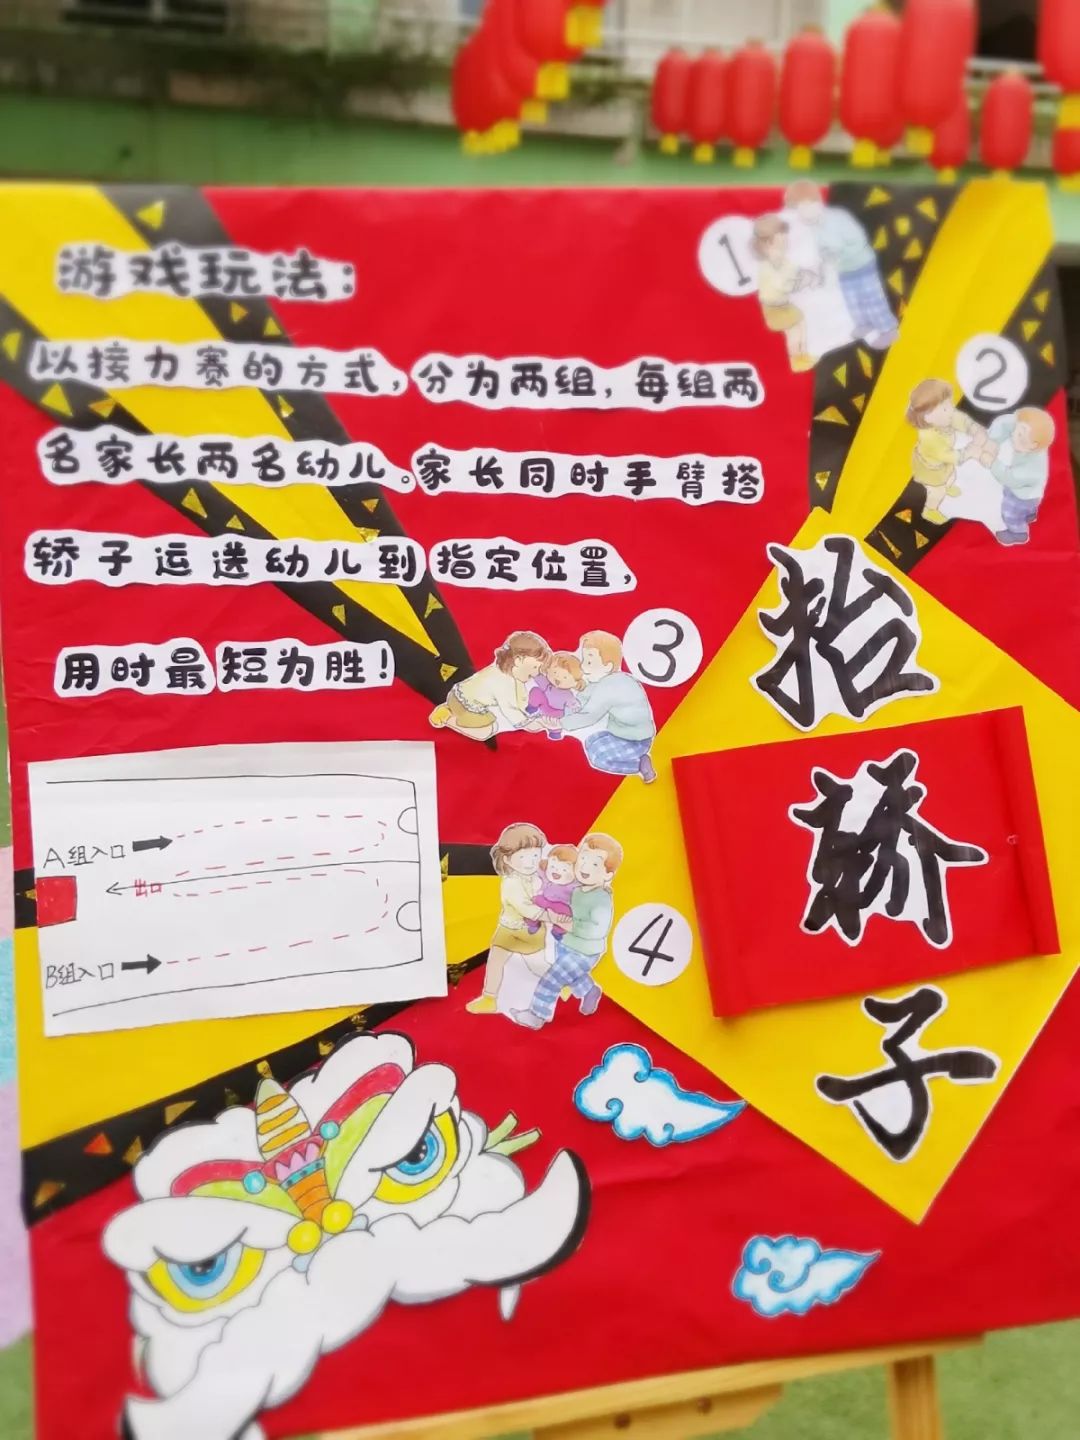 游戏玩法：
以接力赛的方式，分为两组，每组两
名家长两名幼儿。家长同时手臂搭
轿子运送幼儿到指定位置，
用时最短为胜！
1
2
3
4
抬
轿
子
A组入口
出口
B组入口